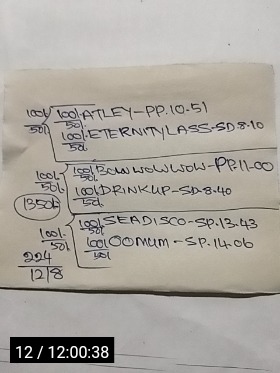 100/- 100/- ATLEY-PP.10.51
50/- 50/-
100/- ETERNITYLASS-SD.8.10
50/-
100/- 100/- BOWWOWWOW-PP.11.00
50/- 50/-
1350/- 100/- DRINKUP-SD.8.40
50/-
100/- 100/- SEADISCO-SP.13.43
50/- 50/-
100/- OOMUM-SP.14.06
50/-
224
12/8
12 / 12:00:38